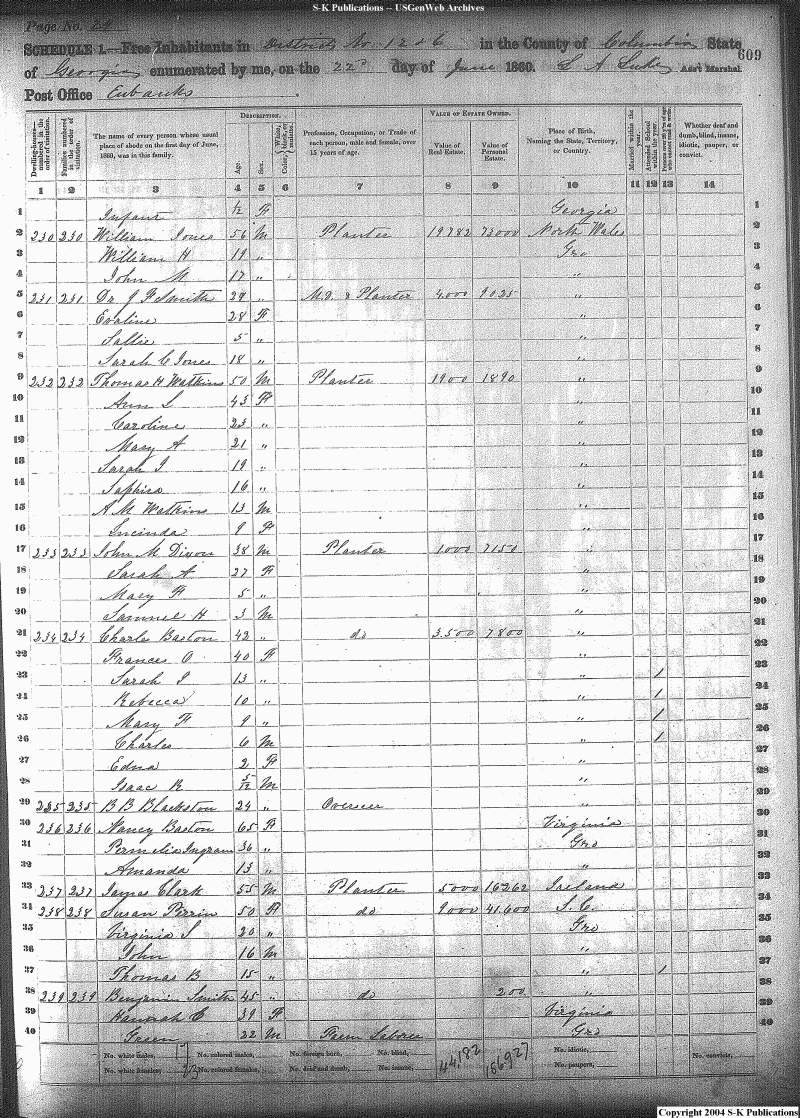 S-K Publications -- USGenWeb Archives
Page No. 24
SCHEDULE 1.—Free Inhabitants in Districts No 12 & 6 in the County of Columbia State 609
of Georgia enumerated by me, on the 22d day of June 1860. L A Luke Ass't Marshal.
Post Office Eubanks
Dwelling-houses—numbered in the order of visitation. Families numbered in the order of visitation. The name of every person whose usual place of abode on the first day of June, 1860, was in this family. DESCRIPTION. Age. Sex. Color, White, black, or mulatto. Profession, Occupation, or Trade of each person, male and female, over 15 years of age. VALUE OF ESTATE OWNED. Value of Real Estate. Value of Personal Estate. Place of Birth, Naming the State, Territory, or Country. Married within the year. Attended School within the year. Persons over 20 y'rs of age who cannot read & write. Whether deaf and dumb, blind, insane, idiotic, pauper, or convict.
1 2 3 4 5 6 7 8 9 10 11 12 13 14
1 Infant 1/12 F Georgia 1
2 230 230 William Jones 56 M Planter 19782 73000 North Wales 2
3 William H 19 " Geo 3
4 John M 17 " " 4
5 231 231 Dr J P Smith 29 " M.D. & Planter 4000 9025 " 5
6 Evaline 28 F " 6
7 Sallie 5 " " 7
8 Sarah C Jones 18 " " 8
9 232 232 Thomas H Watkins 50 M Planter 1900 1890 " 9
10 Ann L 43 F " 10
11 Caroline 23 " " 11
12 Mary A 21 " " 12
13 Sarah J 19 " " 13
14 Saphira 16 " " 14
15 A M Watkins 13 M " 15
16 Lucinda 9 F " 16
17 233 233 John M Dixon 38 M Planter 1000 7150 " 17
18 Sarah A 27 F " 18
19 Mary F 5 " " 19
20 Samuel H 3 M " 20
21 234 234 Charles Baston 42 " do 3,500 7800 " 21
22 Frances O 40 F " 22
23 Sarah J 13 " " 1 23
24 Rebecca 10 " " 1 24
25 Mary F 9 " " 1 25
26 Charles 6 M " 1 26
27 Edna 2 F " 27
28 Isaac R 5/12 M " 28
29 235 235 B B Blackston 24 " Overseer " 29
30 236 236 Nancy Baston 65 F Virginia 30
31 Permelia Ingram 36 " Geo 31
32 Amanda 13 " " 32
33 237 237 James Clark 55 M Planter 5000 16262 Ireland 33
34 238 238 Susan Perrin 50 F do 9000 41,600 S.C. 34
35 Virginia S 20 " Geo 35
36 John 16 M " 36
37 Thomas B 15 " " 1 37
38 239 239 Benjamin Smith 45 " do 200 " 38
39 Hannah C 39 F Virginia 39
40 Green 22 M Farm Laborer Geo 40
No. white males, 17 No. colored males, No. foreign born, No. blind, 44,182 156927 No. idiotic, No. convicts,
No. white females, 23 No. colored females, No. deaf and dumb, No. insane, No. paupers,
Copyright 2004 S-K Publications